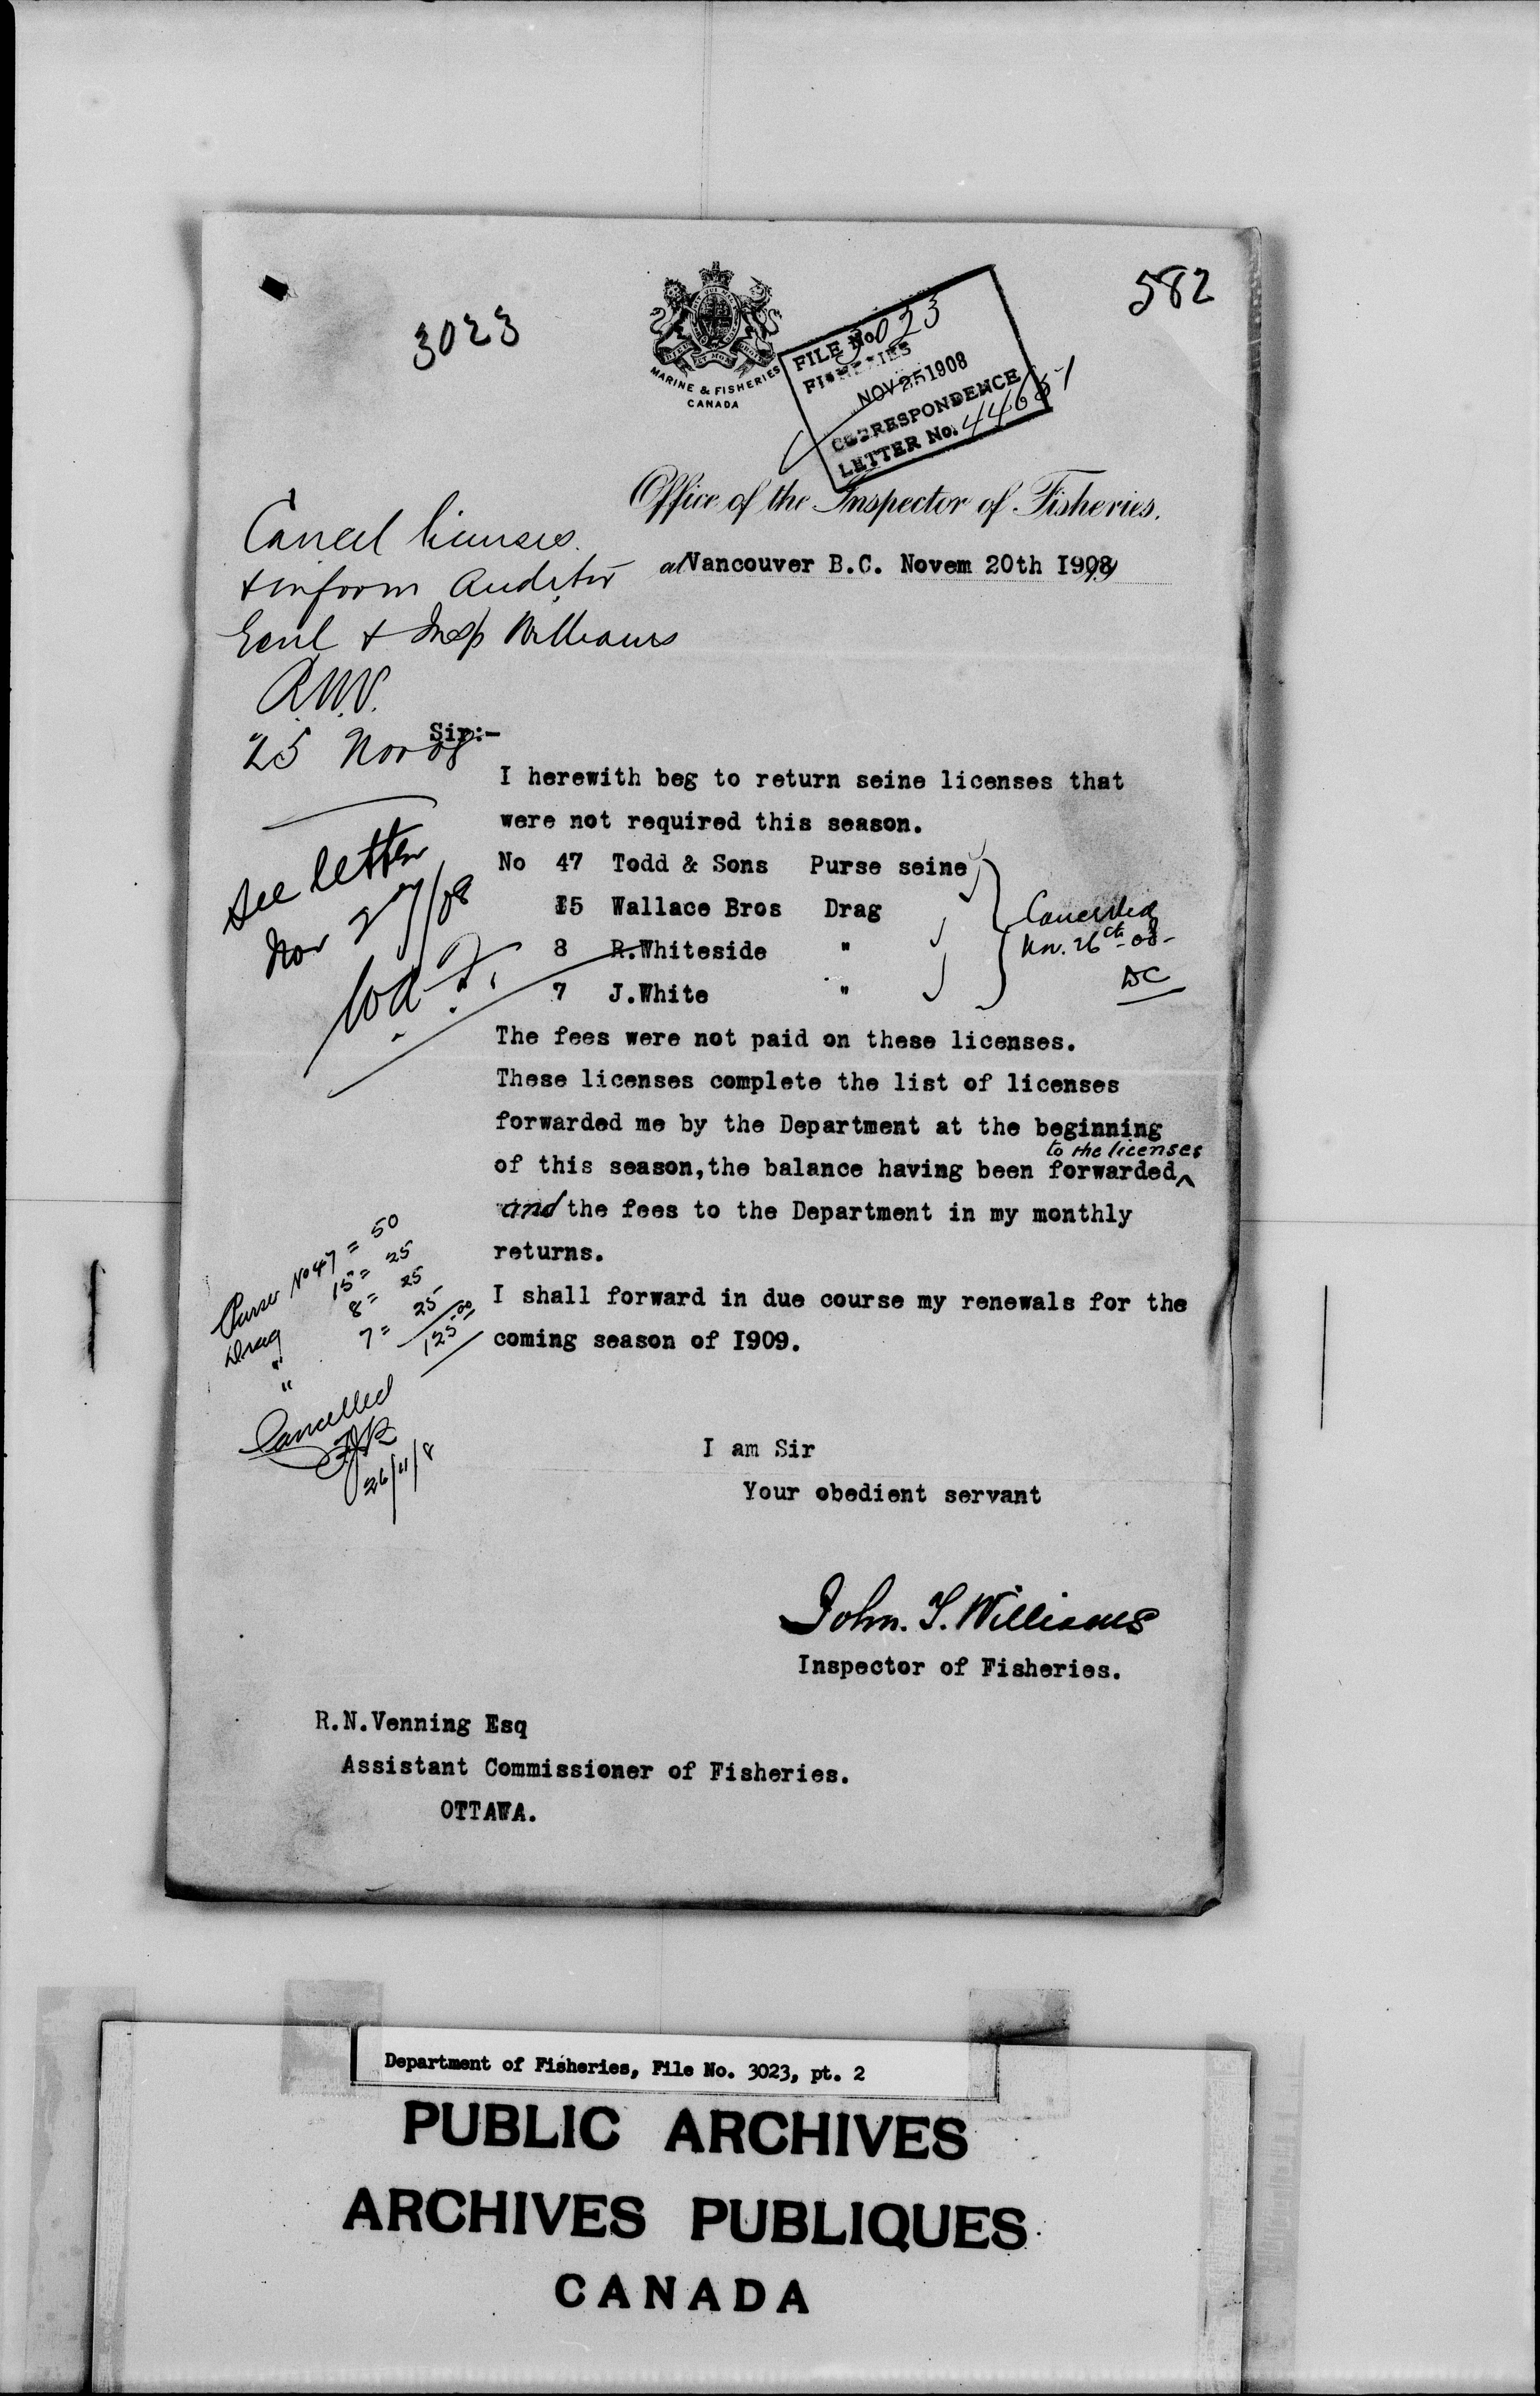 582
3023
MARINE & FISHERIES
CANADA
FILE No. 3023
FISHERIES
NOV 25 1908
CORRESPONDENCE
LETTER No. 44651
Office of the Inspector of Fisheries.
at Vancouver B.C. Novem 20th I908
Cancel licenses
& inform Auditor
Genl & Insp Williams
R.N.V.
25 Nov 08
Sir:-
I herewith beg to return seine licenses that
were not required this season.
No 47 Todd & Sons Purse seine
I5 Wallace Bros Drag
8 R.Whiteside "
7 J.White "
Cancelled
Nov. 26th 08-
DC
See letter
Nov 27/08
The fees were not paid on these licenses.
These licenses complete the list of licenses
forwarded me by the Department at the beginning
to the licenses
of this season,the balance having been forwarded^
and the fees to the Department in my monthly
returns.
I shall forward in due course my renewals for the
coming season of I909.
Purse No 47 = 50
Drag 15 = 25
" 8 = 25
" 7 = 25
125.00
Cancelled
26/11/8
I am Sir
Your obedient servant
John. T. Williams
Inspector of Fisheries.
R.N.Venning Esq
Assistant Commissioner of Fisheries.
OTTAWA.
Department of Fisheries, File No. 3023, pt. 2
PUBLIC ARCHIVES
ARCHIVES PUBLIQUES
CANADA